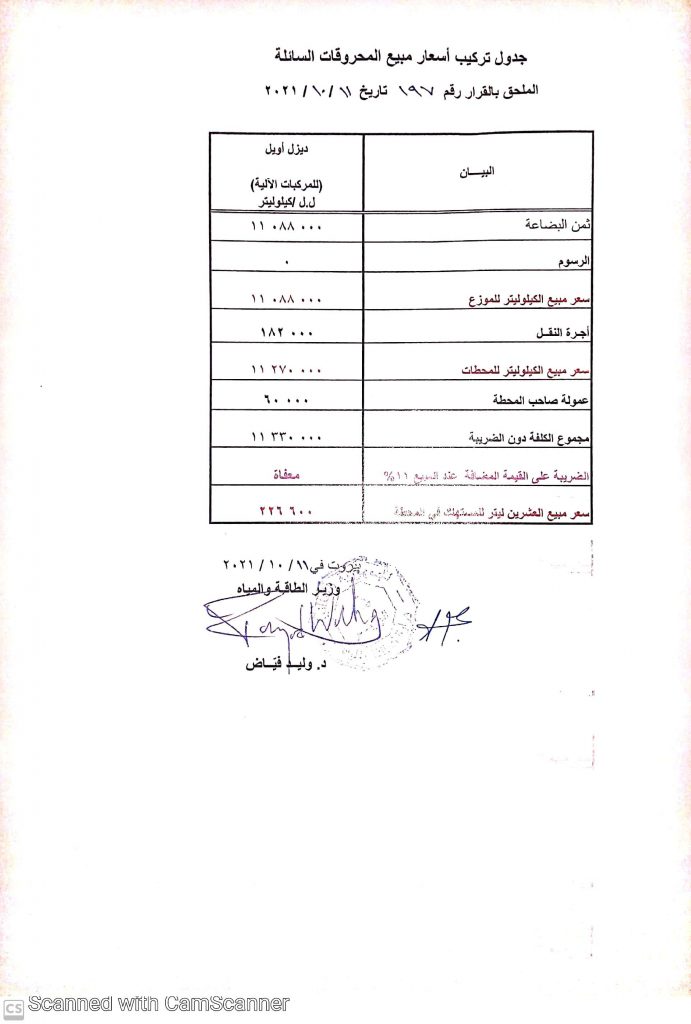 جدول تركيب أسعار مبيع المحروقات السائلة
الملحق بالقرار رقم ١٩٧ تاريخ ١١ / ١٠ / ٢٠٢١
البيـــان ديزل أويل
(للمركبات الآلية)
ل.ل /كيلوليتر
ثمن البضاعة ١١ ٠٨٨ ٠٠٠
الرسوم ٠
سعر مبيع الكيلوليتر للموزع ١١ ٠٨٨ ٠٠٠
أجرة النقـل ١٨٢ ٠٠٠
سعر مبيع الكيلوليتر للمحطات ١١ ٢٧٠ ٠٠٠
عمولة صاحب المحطة ٦٠ ٠٠٠
مجموع الكلفة دون الضريبة ١١ ٣٣٠ ٠٠٠
الضريبة على القيمة المضافة عند البيع ١١% معفاة
سعر مبيع العشرين ليتر للمستهلك في المحطة ٢٢٦ ٦٠٠
بيروت في ١١ / ١٠ / ٢٠٢١
وزيـر الطاقـة والمياه
د. وليـد فيّـاض
CS Scanned with CamScanner